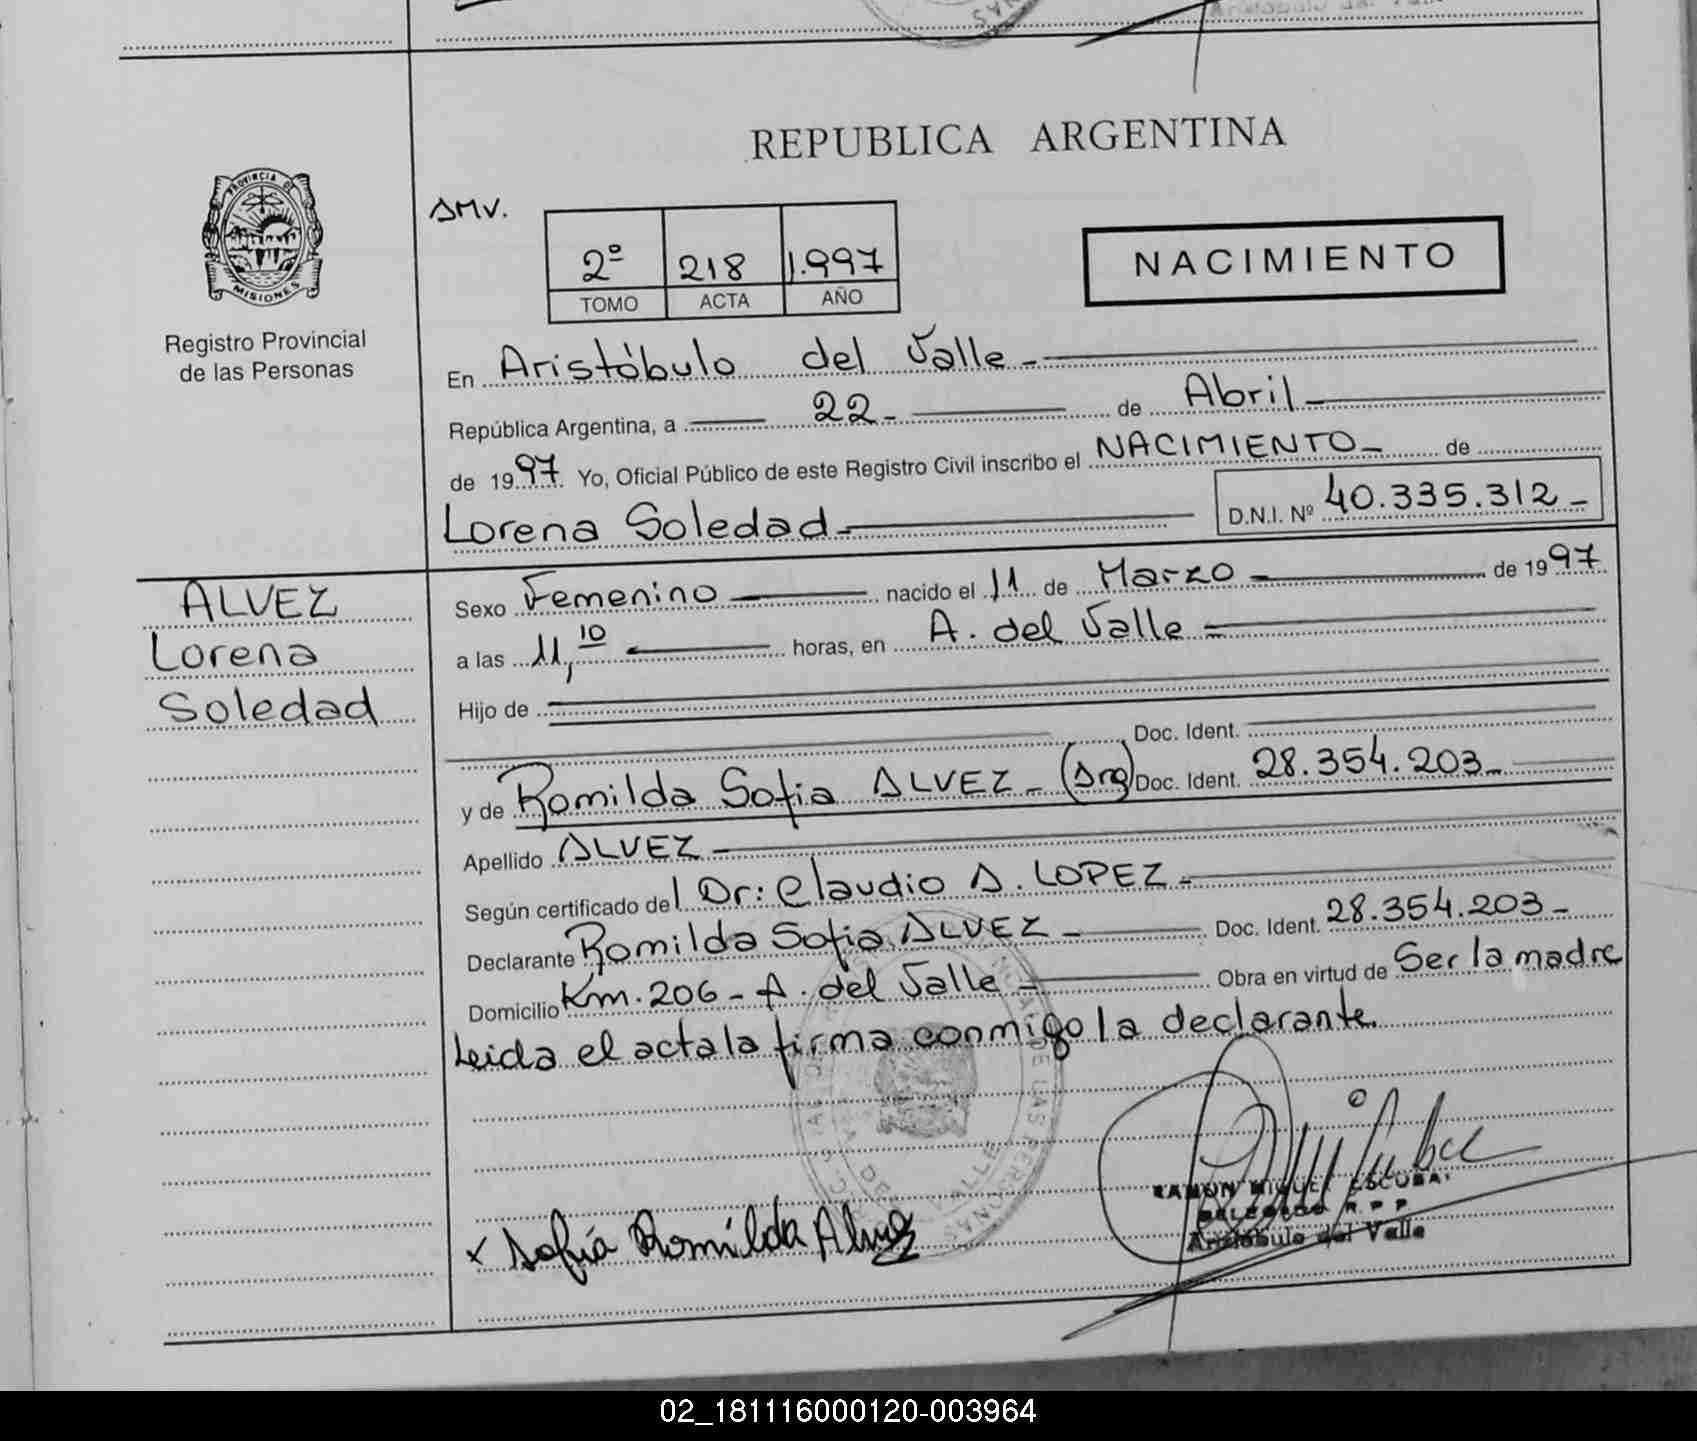 REPUBLICA ARGENTINA
PROVINCIA DE
MISIONES
Registro Provincial
de las Personas
AMV.
2º 218 1.997
TOMO ACTA AÑO
NACIMIENTO
En Aristóbulo del Valle -
República Argentina, a 22- de Abril -
de 1997 Yo, Oficial Público de este Registro Civil inscribo el NACIMIENTO - de
Lorena Soledad - D.N.I. Nº 40.335.312 -
ALVEZ
Lorena
Soledad
Sexo Femenino nacido el 11 de Marzo - de 1997
a las 11,10 horas, en A. del Valle -
Hijo de
Doc. Ident.
y de Romilda Sofia ALVEZ - (Arg) Doc. Ident. 28.354.203 -
Apellido ALVEZ -
Según certificado del Dr: Claudio A. LOPEZ -
Declarante Romilda Sofia ALVEZ - Doc. Ident. 28.354.203 -
Domicilio Km. 206 - A. del Valle - Obra en virtud de Ser la madre
Leida el acta la firma conmigo la declarante.
x Sofía Romilda Alvez
RAMON MIGUEL ESCOBAR
DELEGADO R. P. P
Aristóbulo del Valle
02_181116000120-003964